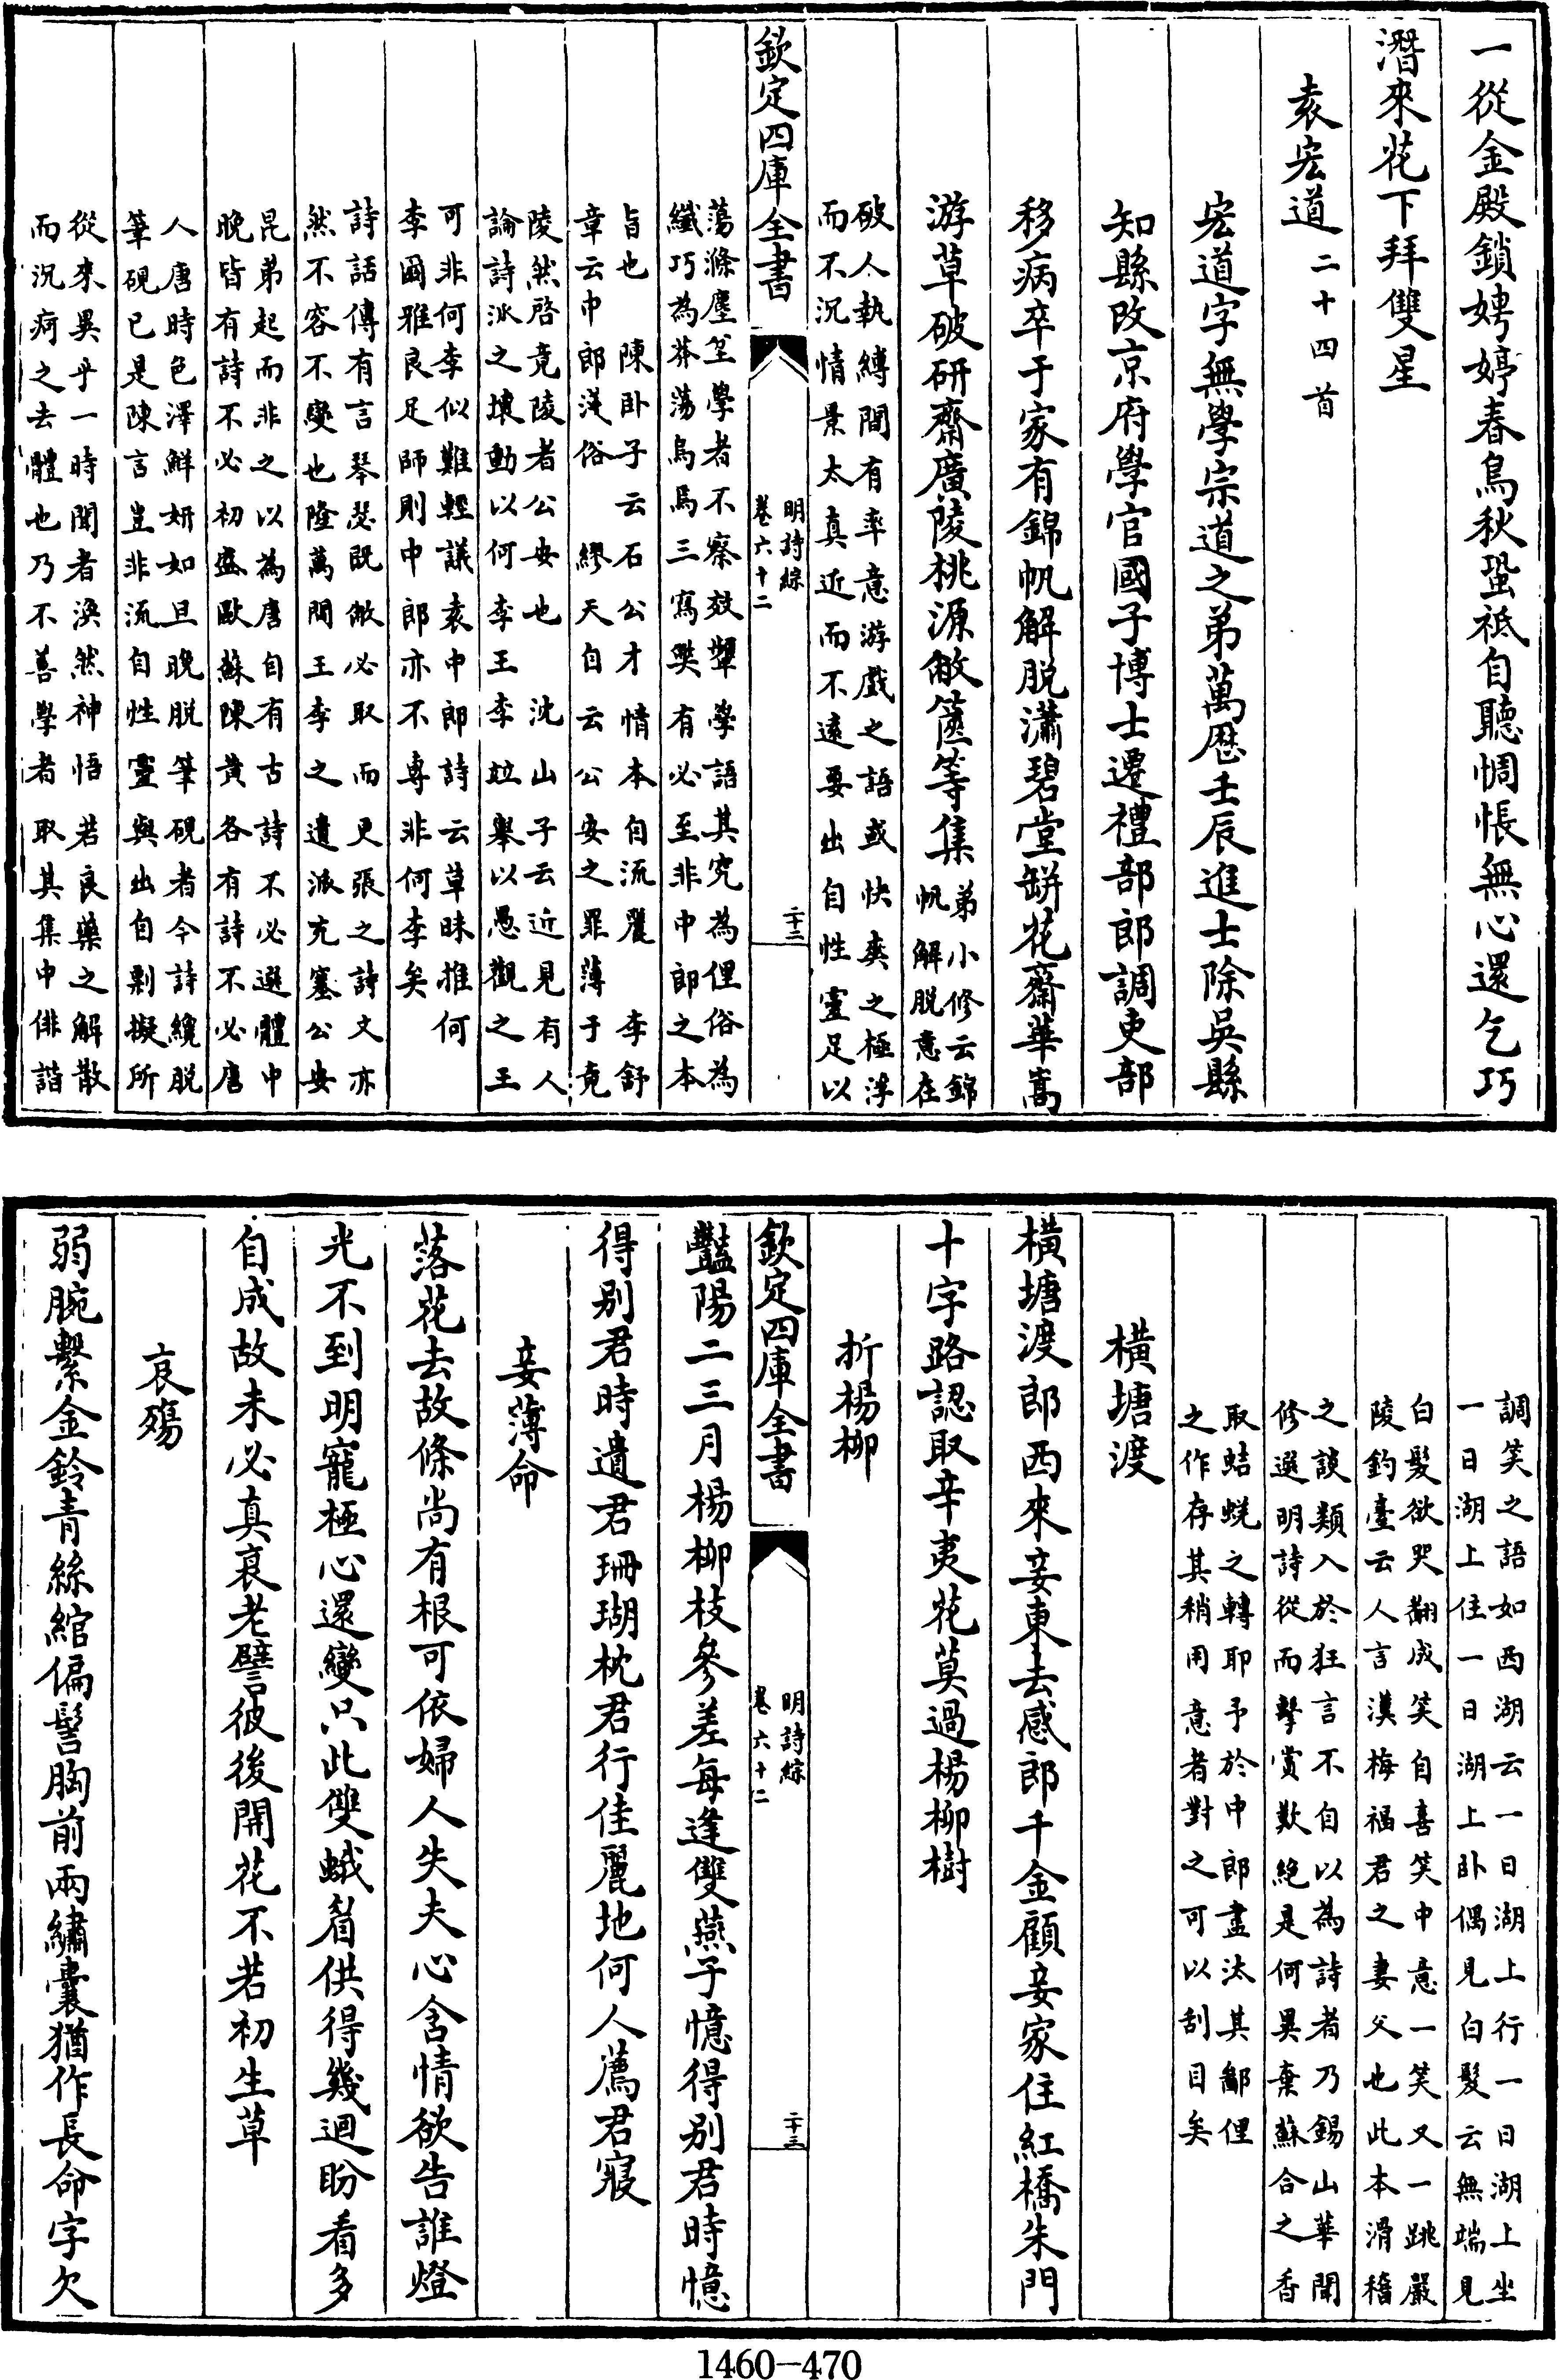 一從金殿鎖娉婷春鳥秋蛩祗自聽惆悵無心還乞巧
潛來花下拜雙星
袁宏道二十四首
宏道字無學宗道之弟萬厯壬辰進士除吳縣
知縣改京府學官國子博士遷禮部郎調吏部
移病卒于家有錦帆解脱瀟碧堂缾花齋華嵩
游草破研齋廣陵桃源敝箧等集
弟小修云錦
帆解脱意在
破人執縛間有率意游戲之語或快爽之極浮
而不沉情景太真近而不遠要出自性靈足以
欽定四庫全書
明詩綜
卷六十二
二十二
蕩滌塵坌學者不察效顰學語其究為俚俗為
纖巧為莽蕩烏焉三寫弊有必至非中郎之本
旨也 陳卧子云石公才情本自流麗 李舒
章云中郎淺俗 繆天自云公安之罪薄于竟
陵然啓竟陵者公安也 沈山子云近見有人
論詩派之壞動以何李王李竝舉以愚觀之王
可非何李似難輕議袁中郎詩云草昧推何
李爾雅良足師則中郎亦不專非何李矣
詩話傳有言琴瑟既敝必取而更張之詩文亦
然不容不變也隆萬間王李之遺派充塞公安
昆弟起而非之以為唐自有古詩不必選體中
晚皆有詩不必初盛歐蘇陳黄各有詩不必唐
人唐時色澤鮮妍如旦晚脱筆硯者今詩纔脱
筆硯已是陳言豈非流自性靈與出自剽擬所
從來異乎一時聞者渙然神悟若良藥之解散
而沉疴之去體也乃不善學者取其集中俳諧
調笑之語如西湖云一日湖上行一日湖上坐
一日湖上住一日湖上卧偶見白髮云無端見
白髮欲哭翻成笑自喜笑中意一笑又一跳嚴
陵釣臺云人言漢梅福君之妻父也此本滑稽
之談類入於狂言不自以為詩者乃錫山華聞
修選明詩從而擊賞歎絶是何異棄蘇合之香
取蛣蜣之轉耶予於中郎盡汰其鄙俚
之作存其稍用意者對之可以刮目矣
橫塘渡
橫塘渡郎西來妾東去感郎千金顧妾家住紅橋朱門
十字路認取辛夷花莫過楊柳樹
折楊柳
欽定四庫全書
明詩綜
卷六十二
二十三
豔陽二三月楊柳枝參差每逢雙燕子憶得别君時憶
得别君時遺君珊瑚枕君行佳麗地何人薦君寢
妾薄命
落花去故條尚有根可依婦人失夫心含情欲告誰燈
光不到明寵極心還變只此雙蛾眉供得幾迴盼看多
自成故未必真衰老譬彼後開花不若初生草
哀殤
弱腕繫金鈴青絲綰偏髻胸前兩繡囊猶作長命字欠
1460-470